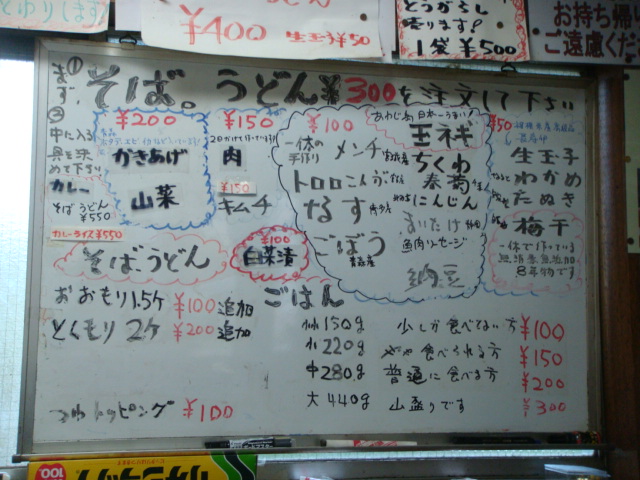 とゆりします
¥400
生玉子¥50
とうがらし
売ります!
1袋 ¥500
お持ち帰
ご遠慮くだ
①まず、そば。うどん¥300を注文して下さい
②中に入る
具を決
めて下さい
カレー
そばうどん
¥550
カレーライス¥550
¥200
かきあげ
山菜
¥150
肉
¥150
キムチ
¥100
一休の
手作り
メンチ
トロロこんぶ
なす
ごぼう
青森産
あわじ島 日本一うまい!
玉ネギ
ちくわ
春菊
にんじん
まいたけ
魚肉ソーセージ
納豆
¥50
生玉子
わかめ
たぬき
梅干
一休で作っている
無消毒無添加
8年物です
そばうどん
¥100
白菜漬
おおもり1.5ケ ¥100 追加
とくもり2ケ ¥200 追加
ごはん
150g 少しか食べてない方 ¥100
小 220g 食べられる方 ¥150
中 280g 普通に食べる方 ¥200
大 440g 山盛りです ¥300
トッピング ¥100
100